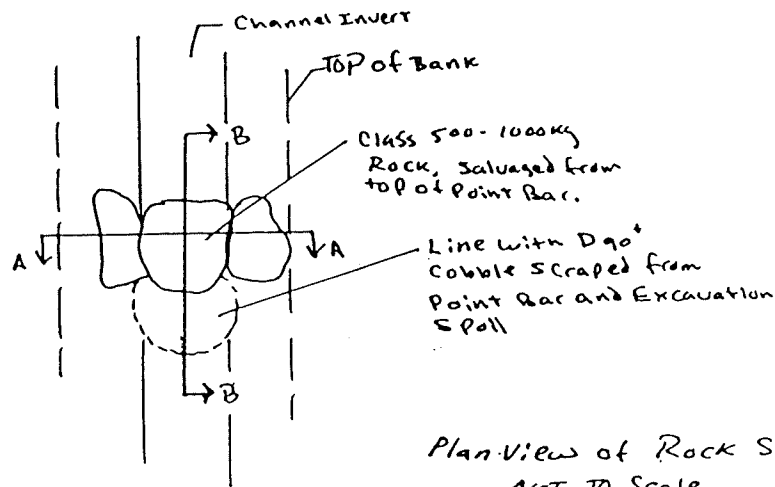 Channel Invert
Top of Bank
B
Class 500-1000Kg
Rock, Salvaged from
top of Point Bar.
A
A
Line with D90+
Cobble Scraped from
Point Bar and Excavation
Spoll
B
Plan View of Rock S
NOT To Scale